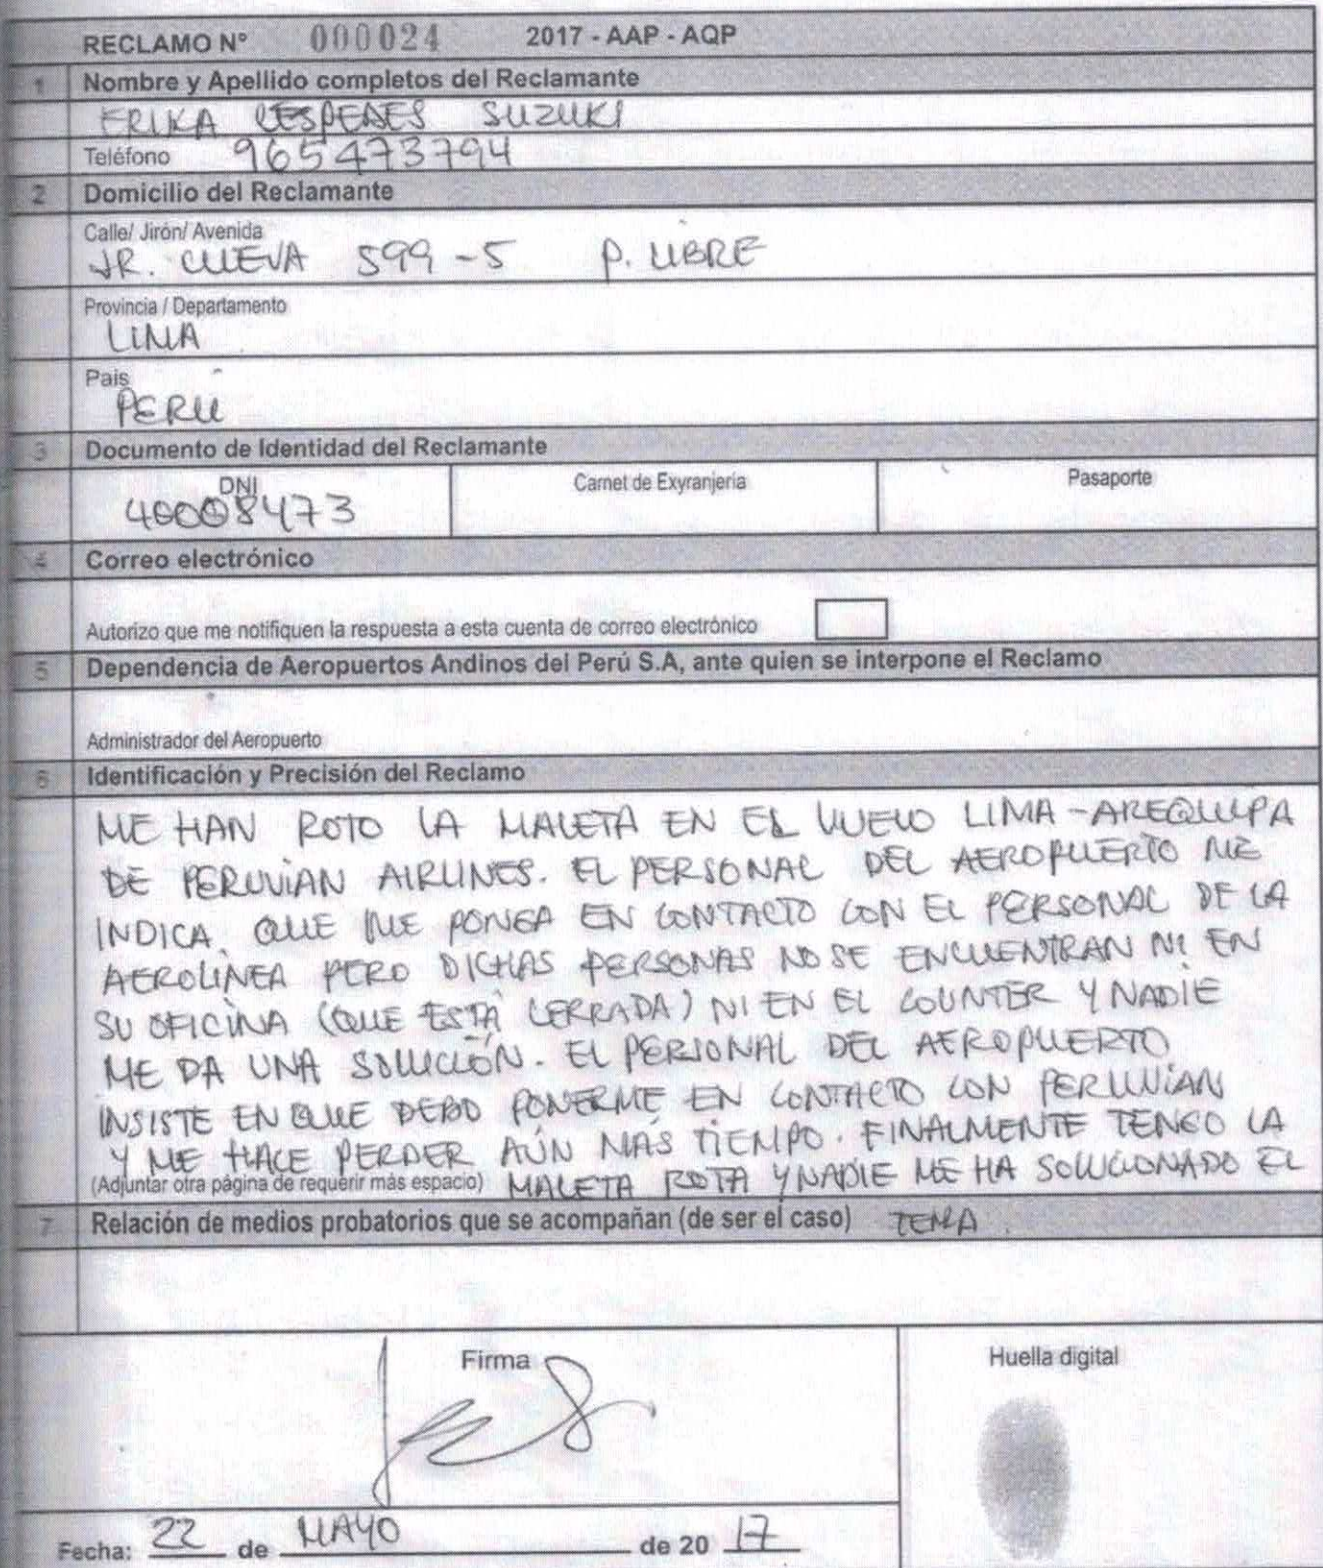 RECLAMO N° 000024 2017 - AAP - AQP
1 Nombre y Apellido completos del Reclamante
ERIKA CESPEDES SUZUKI
Teléfono 965473794
2 Domicilio del Reclamante
Calle/ Jirón/ Avenida
JR. CUEVA 599-5 P. LIBRE
Provincia / Departamento
LIMA
Pais
PERU
3 Documento de Identidad del Reclamante
DNI Carnet de Exyranjería Pasaporte
40008473
4 Correo electrónico
Autorizo que me notifiquen la respuesta a esta cuenta de correo electrónico
5 Dependencia de Aeropuertos Andinos del Perú S.A, ante quien se interpone el Reclamo
Administrador del Aeropuerto
6 Identificación y Precisión del Reclamo
ME HAN ROTO LA MALETA EN EL VUELO LIMA-AREQUIPA
DE PERUVIAN AIRLINES. EL PERSONAL DEL AEROPUERTO ME
INDICA QUE ME PONGA EN CONTACTO CON EL PERSONAL DE LA
AEROLÍNEA PERO DICHAS PERSONAS NO SE ENCUENTRAN NI EN
SU OFICINA (QUE ESTÁ CERRADA) NI EN EL COUNTER Y NADIE
ME DA UNA SOLUCIÓN. EL PERSONAL DEL AEROPUERTO
INSISTE EN QUE DEBO PONERME EN CONTACTO CON PERUVIAN
Y ME HACE PERDER AÚN MÁS TIEMPO. FINALMENTE TENGO LA
(Adjuntar otra página de requerir más espacio) MALETA ROTA Y NADIE ME HA SOLUCIONADO EL
7 Relación de medios probatorios que se acompañan (de ser el caso) TEMA.
Firma Huella digital
Fecha: 22 de MAYO de 20 17